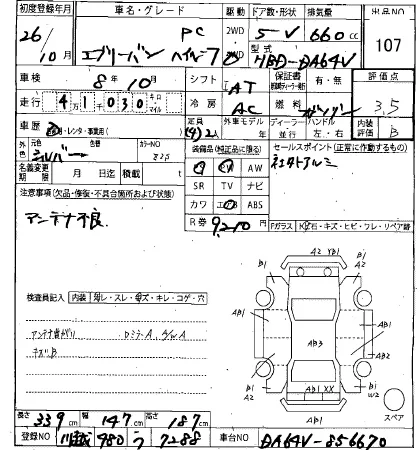 初度登録年月 車名・グレード 駆動 ドア数・形状 排気量 出品NO
26 / 10月 PC 2WD 5 V 660 cc 107
エブリーバン ハイルーフ 型式 HBD-DA64V
車検 8年 10月 シフト AT 保証書 有・無 評価点
走行 4 1 0 3 0 キロ マイル 冷房 AC 燃料 ガソリン 3.5
車歴 レンタ・事業用 定員 外車モデル ディーラー 並行 ハンドル 左・右 内装評価 B
外色 元色 シルバー 色替 カラーNO
装備品(純正品に限る) セールスポイント(正常に作動するもの)
名義変更期限 月 日迄 積載 t AW 社外アルミ
注意事項(欠品・修復・不具合箇所および状態) SR TV ナビ
アンテナ不良 カワ エアB ABS
R券 9,210円 Fガラス 石・キズ・ヒビ・フレ・リペア跡
検査員記入 内装 スレ・キズ・キレ・コゲ・穴
アンテナ曲がり DミラーA
キズB
A2 YB1
B1 A2
B1 A2
AB1 AB1
AB3
AB1 AB2
B1 AB1 XX B1 W2
AB1
スペア
長さ 339 cm 幅 147 cm 高さ 187 cm
登録NO 川越 480 う 7288 車台NO DA64V-856670